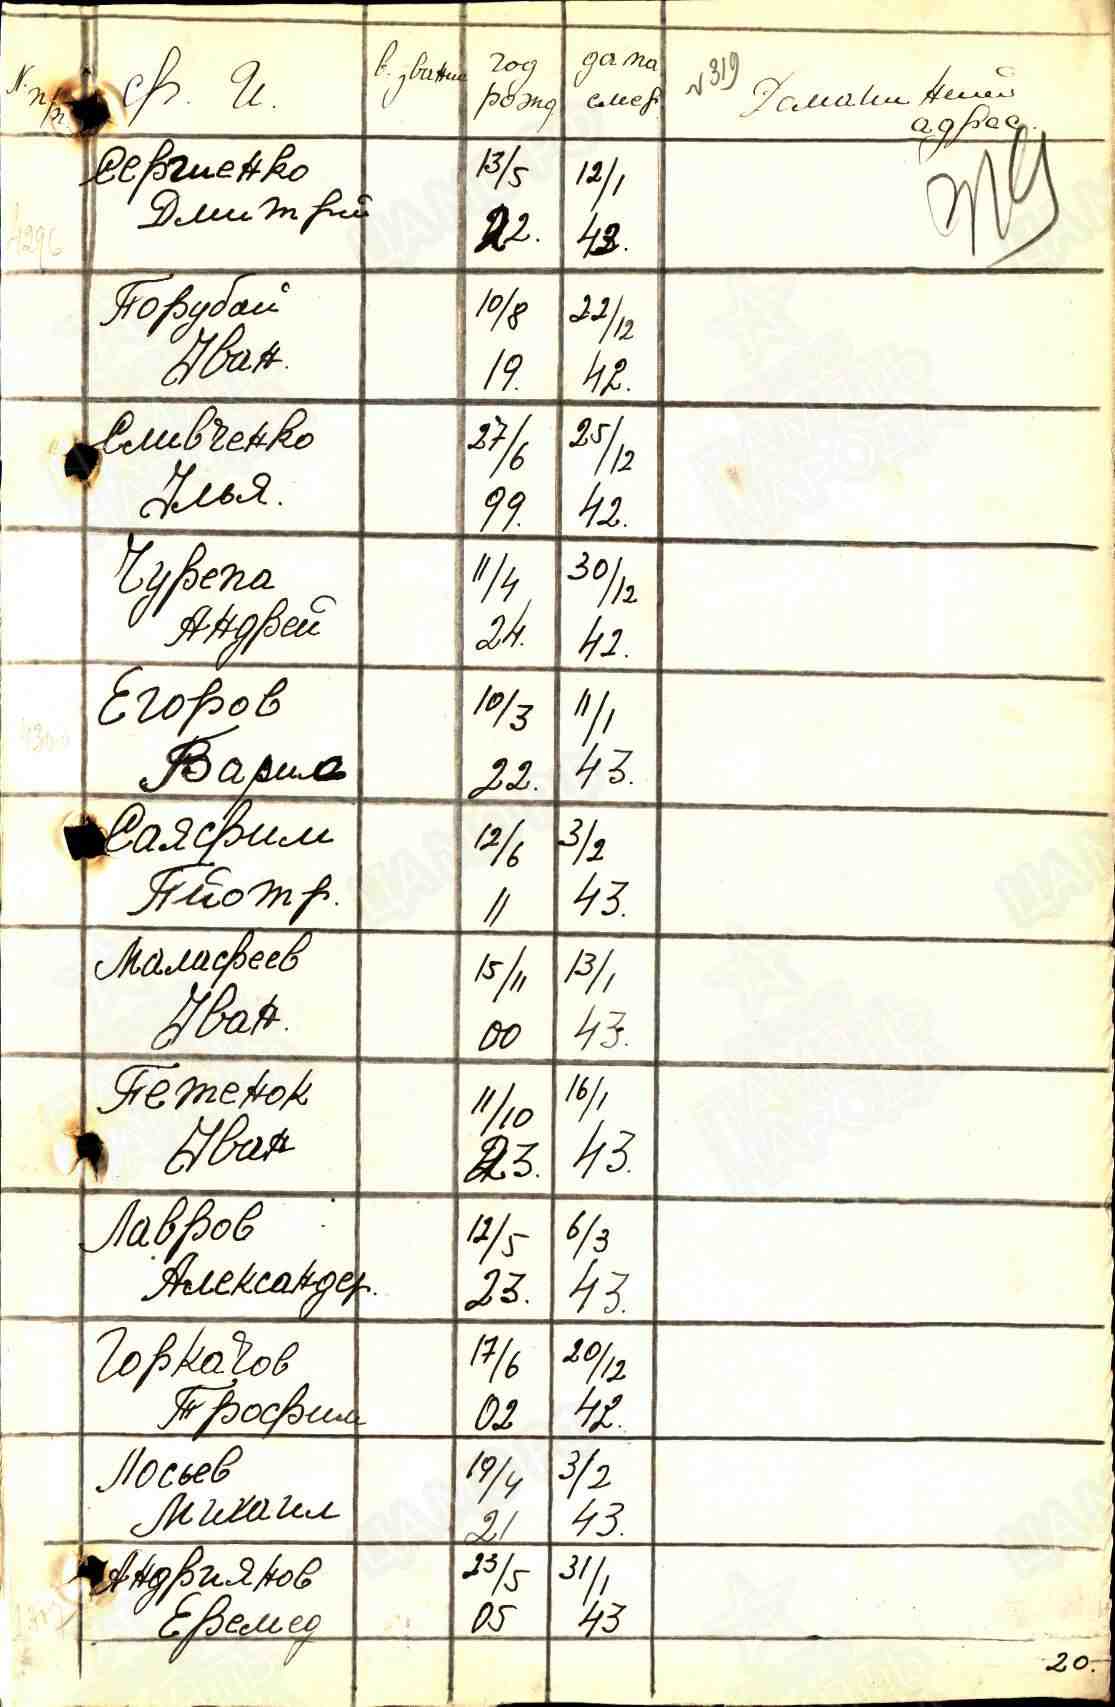 N. п/п. Ф. И. в. звание год рожд дата смер. №319 Домашний адрес.
Сергиенко 13/5 12/1
Дмитрий 22. 43.
4296
Порубай 10/8 22/12
Иван. 19. 42.
Сливченко 27/6 25/12
Илья. 99. 42.
Чурепа 11/4 30/12
Андрей 24. 42.
Егоров 10/3 11/1
22. 43.
Саясфим 12/6 3/2
Пйотр. 11 43.
Маласфеев 15/11 13/1
Иван. 00 43.
Петенок 11/10 16/1
Иван 23. 43.
Лавров 12/5 6/3
Александер. 23. 43.
Горкачов 17/6 20/12
Тросфим 02 42.
Лосьев 19/4 3/2
Михаил 21 43.
Андриянов 23/5 31/1
Еремед 05 43
20.